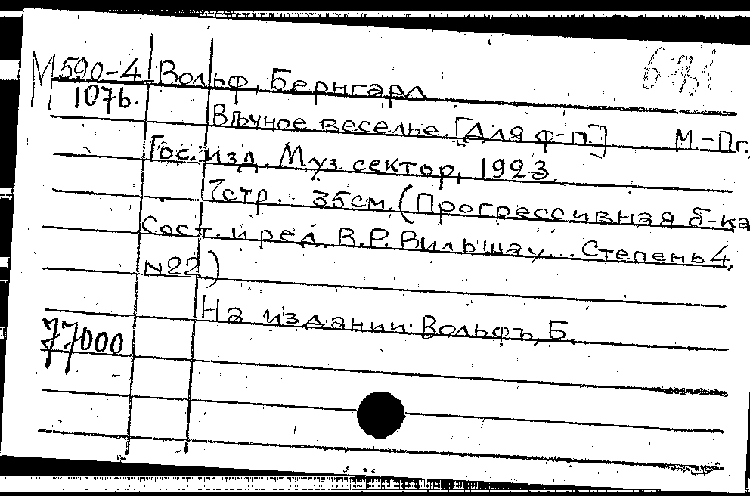 М 590-4 Вольф, Бернгард
107б.
Вѣчное веселье. [Для ф-п.] М.-Пг.
Гос. изд. Муз. сектор, 1923.
7стр. 35см. (Прогрессивная б-ка
Сост. и ред. В.Р. Вильшау... Степень 4,
N22)
На издании: Вольфъ, Б.
77000